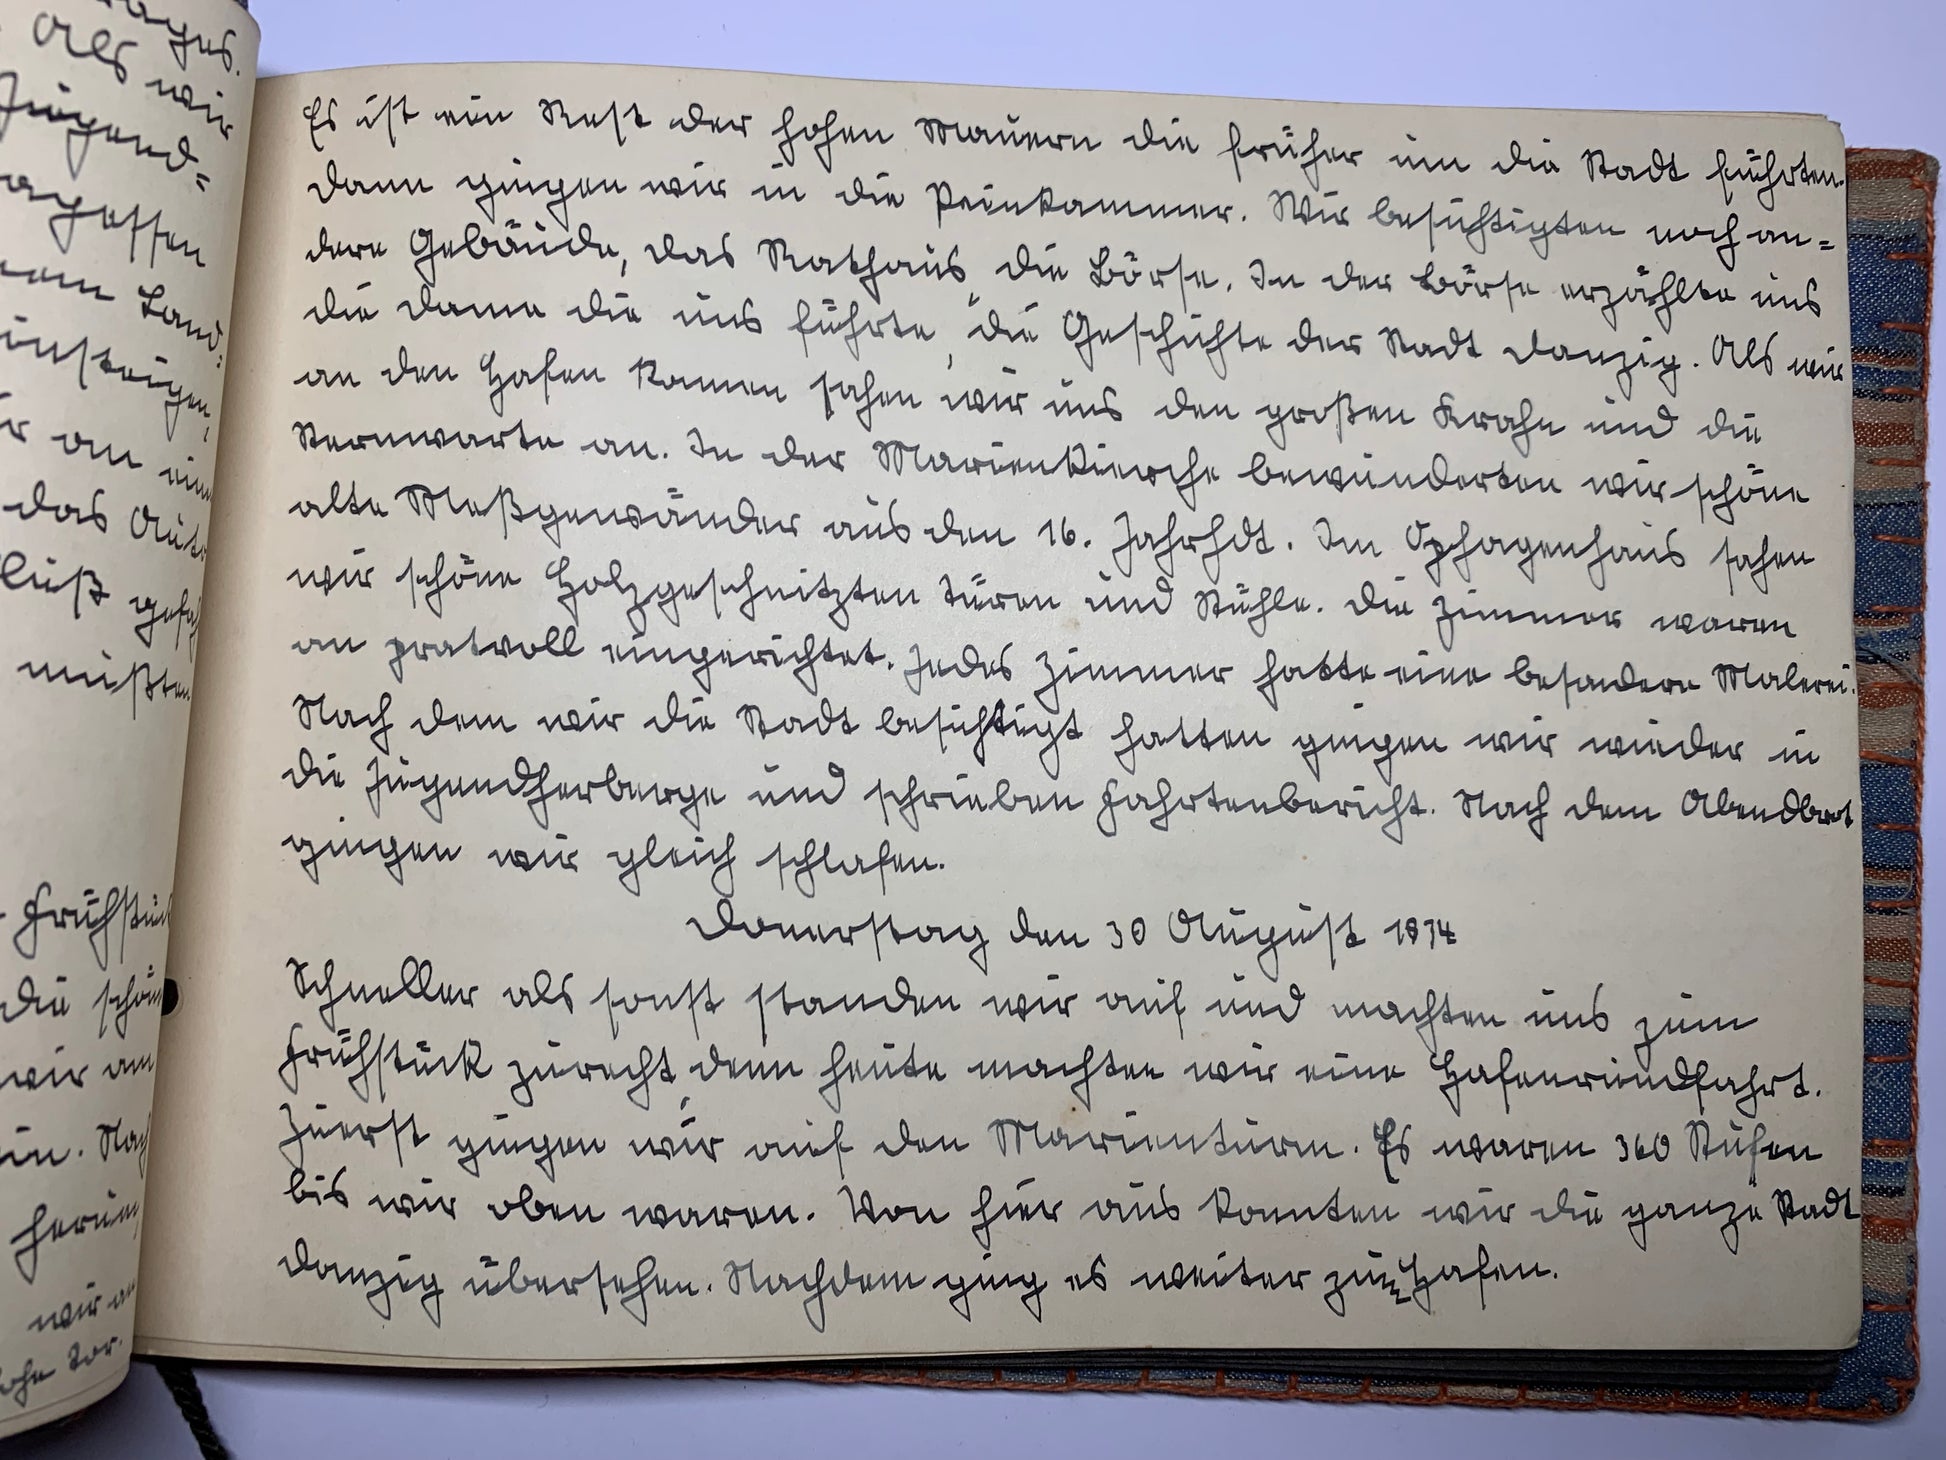 ages.
Als wir
Jugend=
agessen
Land=
einsteigen,
an
das Auto
müßten
Frühstück
die schön
wir am
Nach
herum
wir
hohe Tor.
Es ist ein Rest der hohen Mauern die früher um die Stadt führten.
Dann gingen wir in die Peinkammer. Wir besichtigten noch an=
dere Gebäude, das Rathaus, die Börse. In der Börse erzählte uns
die Dame die uns führte, die Geschichte der Stadt Danzig. Als wir
an den Hafen kamen sahen wir uns den großen Krahn und die
Sternwarte an. In der Marienkierche bewunderten wir schöne
alte Meßgewänder aus den 16. Jahrhdt. Im Ophagenhaus sahen
wir schöne Holzgeschnitzten Türen und Stühle. Die Zimmer waren
an pratvoll eingerichtet. Jedes Zimmer hatte eine besondere Malerei.
Nach dem wir die Stadt besichtigt hatten gingen wir wieder in
die Jugendherberge und schrieben Fahrtenbericht. Nach dem Abendbrot
gingen wir gleich schlafen.
Donerstag den 30 August 1934
Schneller als sonst standen wir auf und machten uns zum
Frühstück zurecht, denn heute machten wir eine Hafenrundfahrt.
Zuerst gingen wir auf den Marienturm. Es waren 360 Stufen
bis wir oben waren. Von hier aus konnten wir die ganze Stadt
Danzig übersehen. Nachdem ging es weiter zum Hafen.